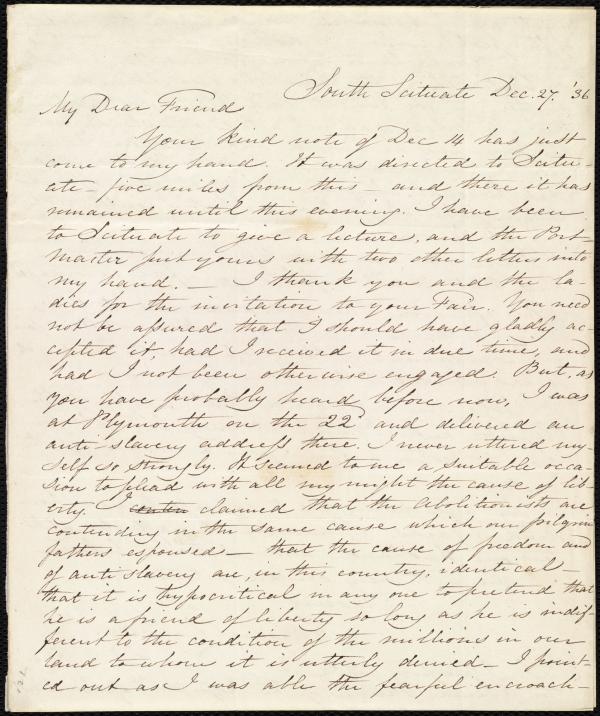 South Scituate Dec. 27. '36
My Dear Friend
Your kind note of Dec 14 has just
come to my hand. It was directed to Scitu-
ate - five miles from this - and there it has
remained until this evening. I have been
to Scituate to give a lecture, and the Post-
Master put yours with two other letters into
my hand. — I thank you and the la-
dies for the invitation to your Fair. You need
not be assured that I should have gladly ac-
cepted it, had I received it in due time, and
had I not been otherwise engaged. But, as
you have probably heard before now, I was
at Plymouth on the 22d and delivered an
anti-slavery address there. I never uttered my-
self so strongly. It seemed to me a suitable occa-
sion to plead with all my might the cause of lib-
erty. I conten claimed that the Abolitionists are
contending in the same cause which our pilgrim
fathers espoused - that the cause of freedom and
of anti slavery are, in this country, identical -
that it is hypocritical in any one to pretend that
he is a friend of liberty so long as he is indif-
ferent to the condition of the millions in our
land to whom it is utterly denied - I point-
ed out as I was able the fearful encroach-